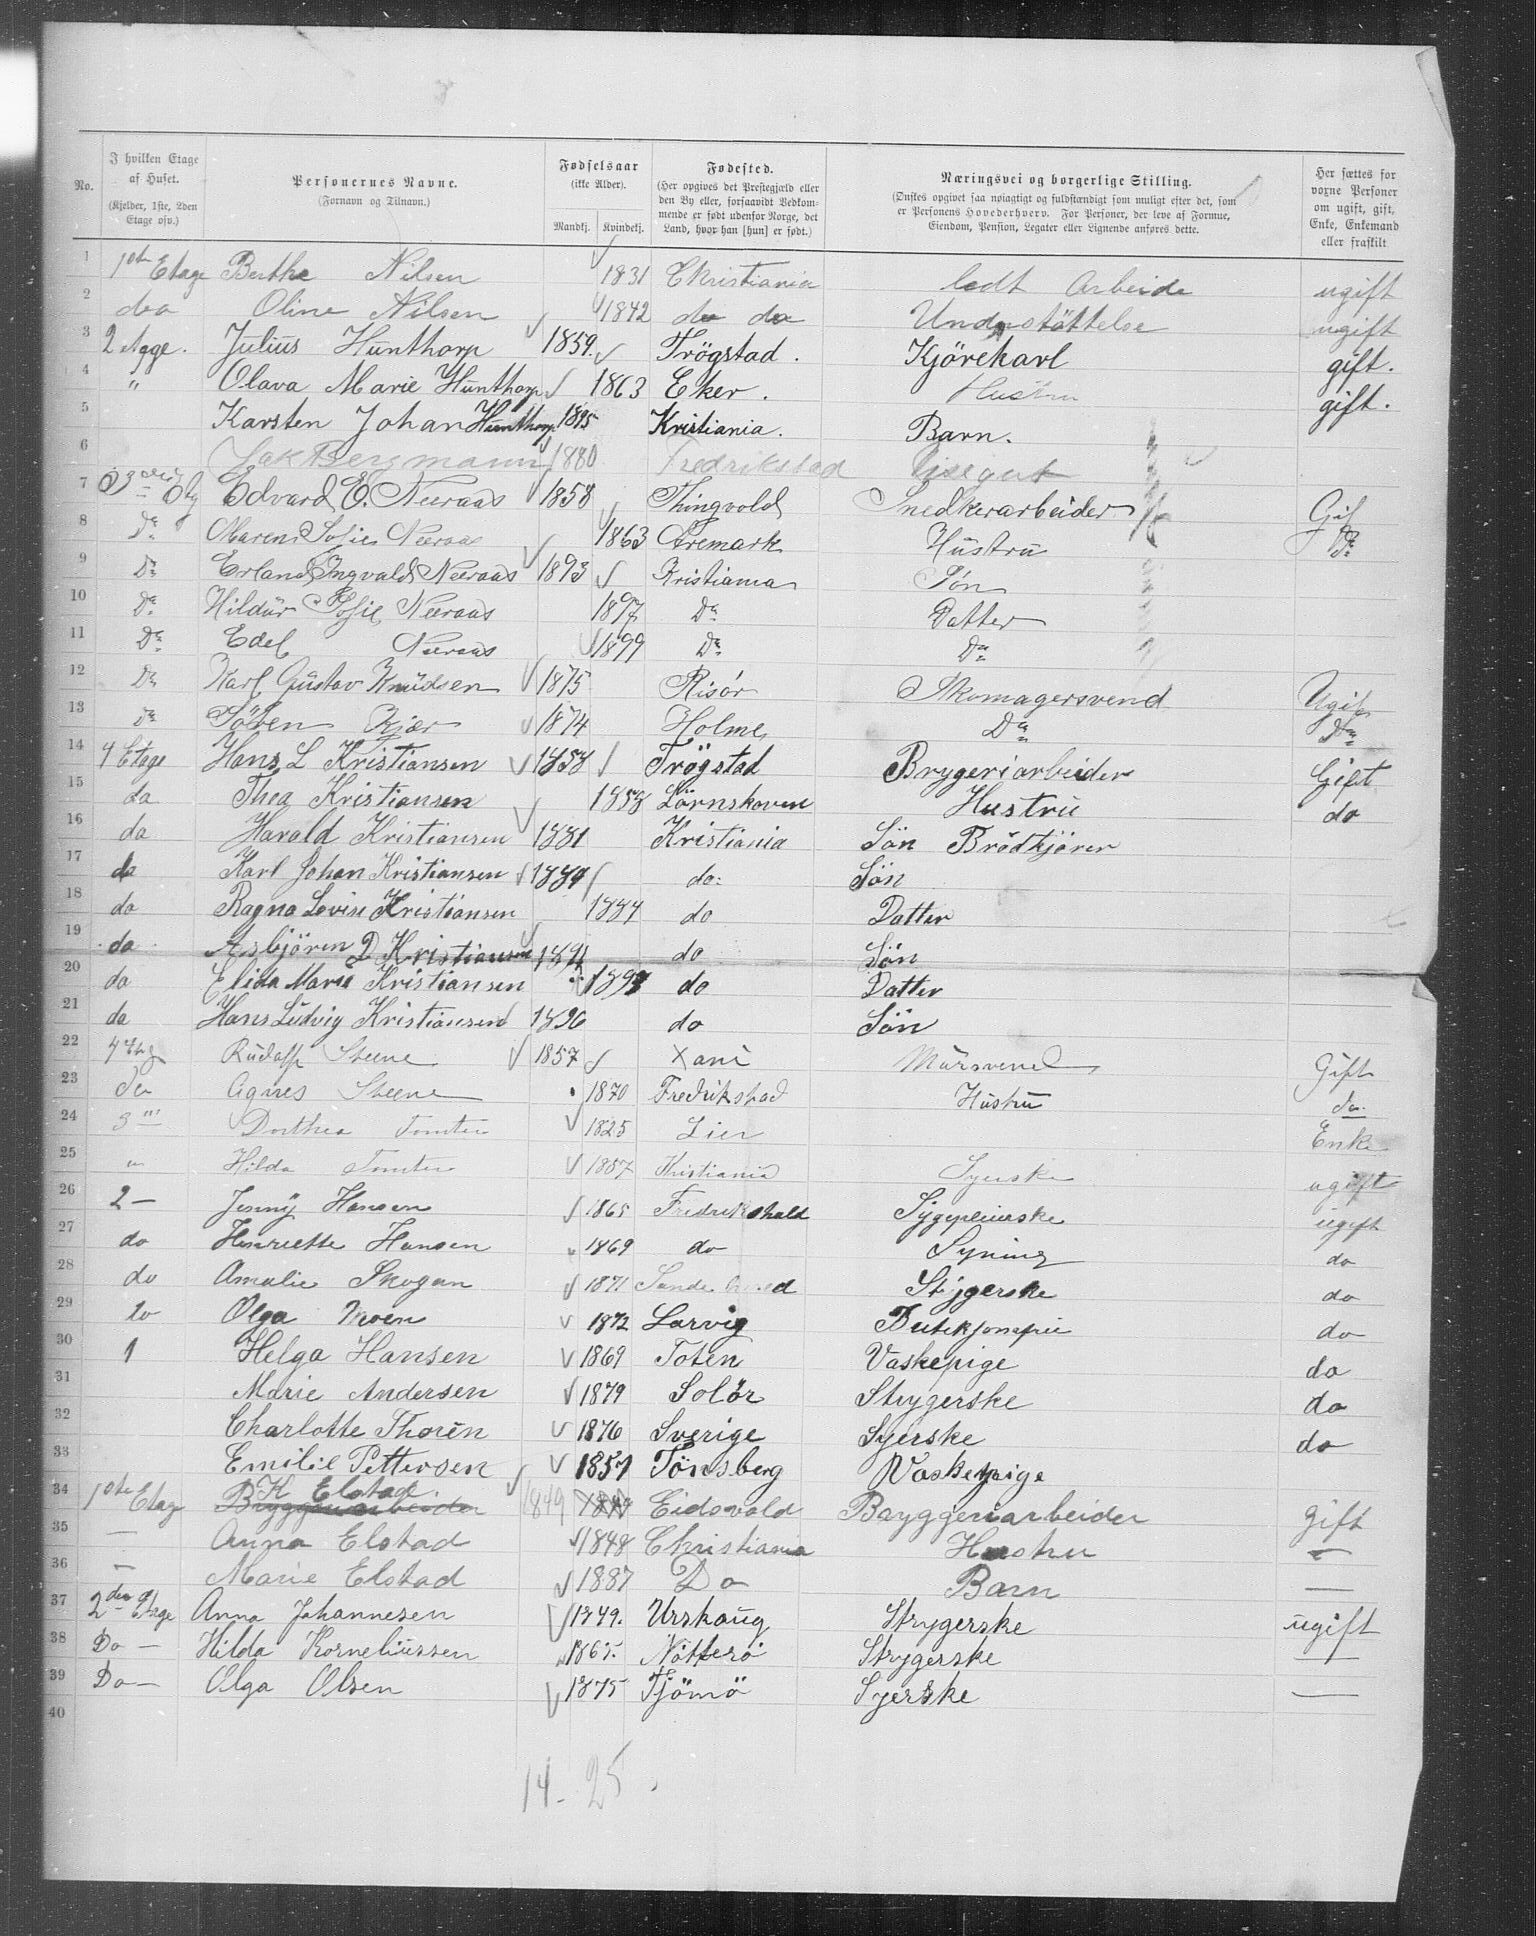 No.
I hvilken Etage af Huset. (Kjelder, 1ste, 2den Etage osv.)
Personernes Navne. (Fornavn og Tilnavn.)
Fødselsaar (ikke Alder). Mandkj. Kvindekj.
Fødested. (Her opgives det Prestegjæld eller den By eller, forsaavidt Vedkommende er født udenfor Norge, det Land, hvor han [hun] er født.)
Næringsvei og borgerlige Stilling. (Ønskes opgivet saa nøiagtigt og fuldstændigt som muligt efter det, som er Personens Hovederhverv. For Personer, der leve af Formue, Eiendom, Pension, Legater eller Lignende anføres dette.)
Her sættes for voxne Personer om ugift, gift, Enke, Enkemand eller fraskilt
1 1ste Etage Berthe Nilsen 1831 Christiania ledt Arbeide ugift
2 do Oline Nilsen 1842 do do Understöttelse ugift
3 2 Age. Julius Hunthorp 1859. Trögstad. Kjörekarl gift.
4 " Olava Marie Hunthorp 1863 Eker. Hustru gift.
5 Karsten Johan Hunthorp 1895 Kristiania. Barn.
6 Bergmann 1880 Fredrikstad
7 Etg Edvard E. Neeraas 1858 Thingvold Snedkerarbeider Gif
8 Do Maren Sofie Neeraas 1863 Aremark Hustru Do
9 Do Erland Ingvald Neeraas 1893 Kristiania Sön
10 Do Hildur Sofie Neeraas 1897 Do Datter
11 Do Edel Neeraas 1899 Do Do
12 Do Karl Gustav Knudsen 1875 Risör Skomagersvend Ugift
13 Do Sören Kjær 1874 Holme Do Do
14 4 Etage Hans L Kristiansen 1858 Trögstad Brygeriarbeider Gift
15 da Thea Kristiansen 1858 Lörnskoven Hustru do
16 da Harald Kristiansen 1881 Kristiania Sön Brödkjörer
17 da Karl Johan Kristiansen 1884 do: Sön
18 da Ragna Lovise Kristiansen 1887 do Datter
19 da Asbjören D Kristiansen 1891 do Sön
20 da Elida Marie Kristiansen 1893 do Datter
21 da Hans Ludvig Kristiansen 1896 do Sön
22 4 Etg Rudolf Steene 1857 Xani Mursvend Gift
23 do Agnes Steene 1870 Fredrikstad Hustru do.
24 3 Dorthea Tomter 1825 Lier Enke
25 " Hilda Tomter 1887 Kristiania Syerske ugift
26 2 — Jenny Hansen 1865 Fredrikshald Sygepleierske ugift
27 do Henriette Hansen 1869 do Syning do
28 do Amalie Skogan 1871 Strygerske do
29 do Olga Moen 1872 Larvig Butikjomfru do
30 1 Helga Hansen 1869 Toten Vaskepige do
31 Marie Andersen 1879 Solör Strygerske do
32 Charlotte Thorén 1876 Sverige Syerske do
33 Emilie Pettersen 1857 Tönsberg Vaskepige
34 1ste Etage K Elstad Bryggeriarbeider 1849 Eidsvold Bryggeriarbeider gift
35 — Anna Elstad 1848 Christiania Hustru —
36 — Marie Elstad 1887 Do Barn —
37 2den Etage Anna Johannesen 1849. Urskoug Strygerske ugift
38 Do — Hilda Korneliussen 1865. Nötterö Strygerske —
39 Do — Olga Olsen 1875 Tjömö Syerske —
40
14 - 25.